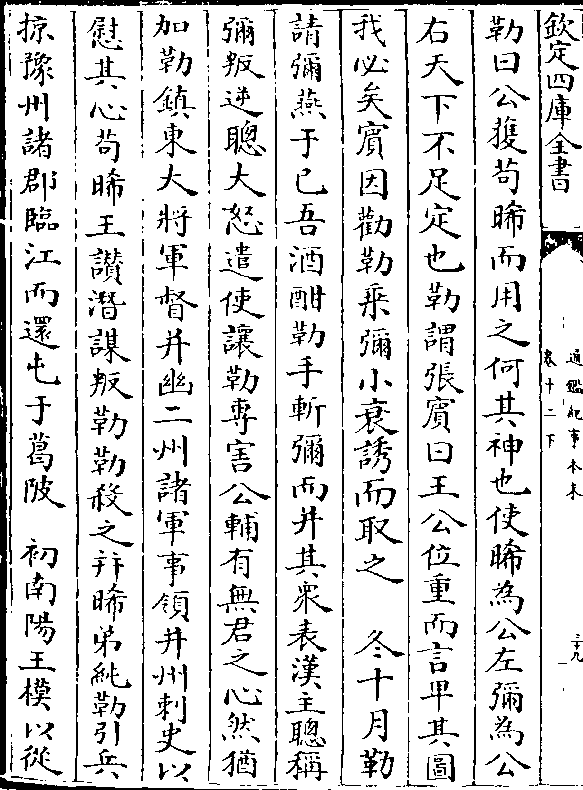 欽定四庫全書
通鑑紀事本末
卷十二下
三九
勒曰公獲苟晞而用之何其神也使晞為公左彌為公
右天下不足定也勒謂張賓曰王公位重而言卑其圖
我必矣賓因勸勒乘彌小衰誘而取之　冬十月勒
請彌燕于已吾酒酣勒手斬彌而并其衆表漢主聰稱
彌叛逆聰大怒遣使讓勒専害公輔有無君之心然猶
加勒鎮東大將軍督并幽二州諸軍事領并州刺史以
慰其心苟晞王讚潛謀叛勒勒殺之并晞弟純勒引兵
掠豫州諸郡臨江而還屯于葛陂　初南陽王模以從